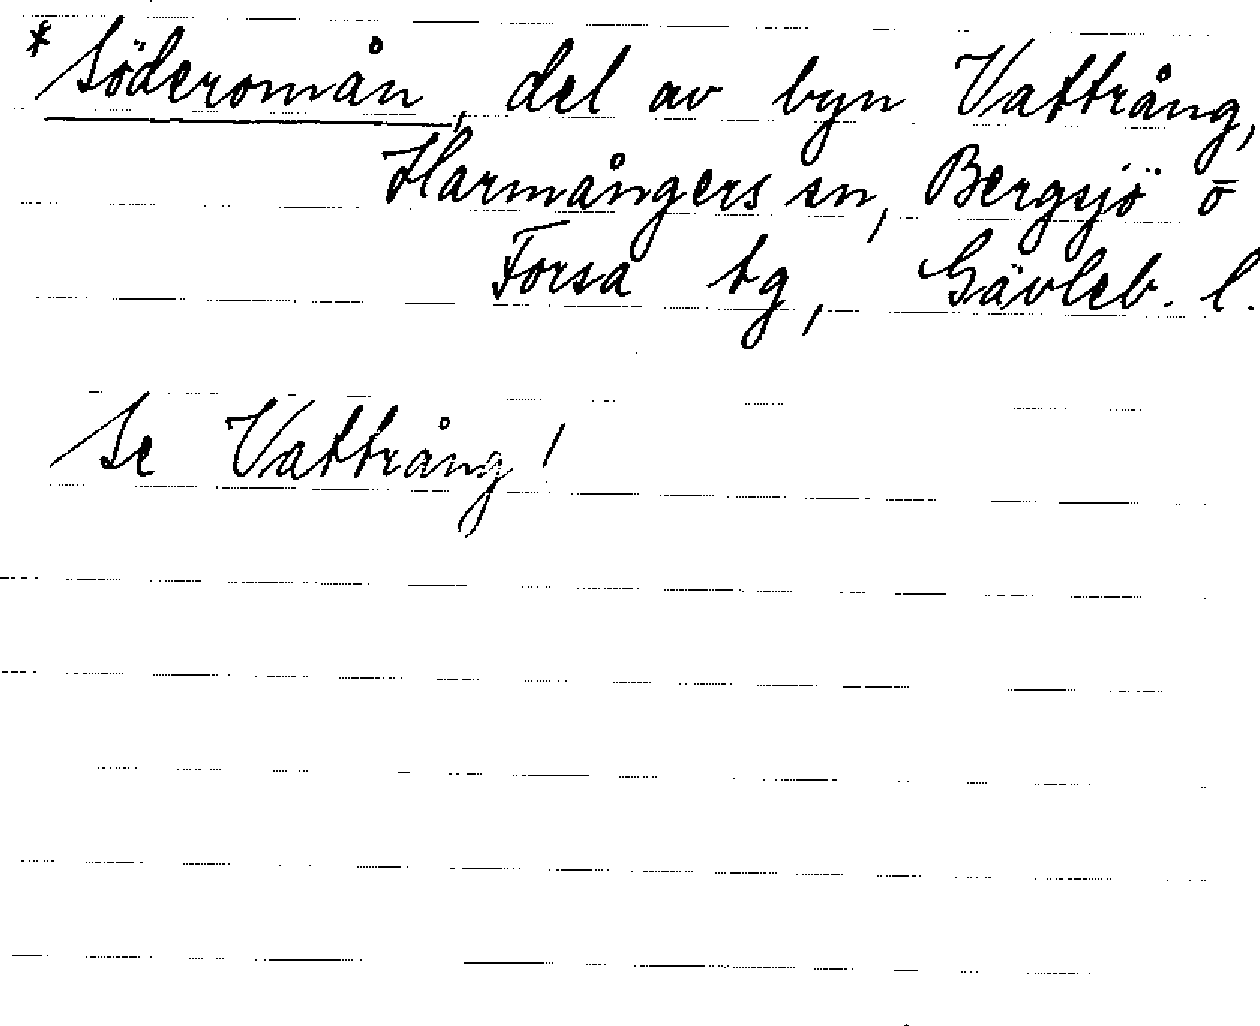 * Söderomån, del av byn Vattrång,
Harmångers sn, Bergsjö o
Forsa tg, Gävleb. l.
Se Vattrång!